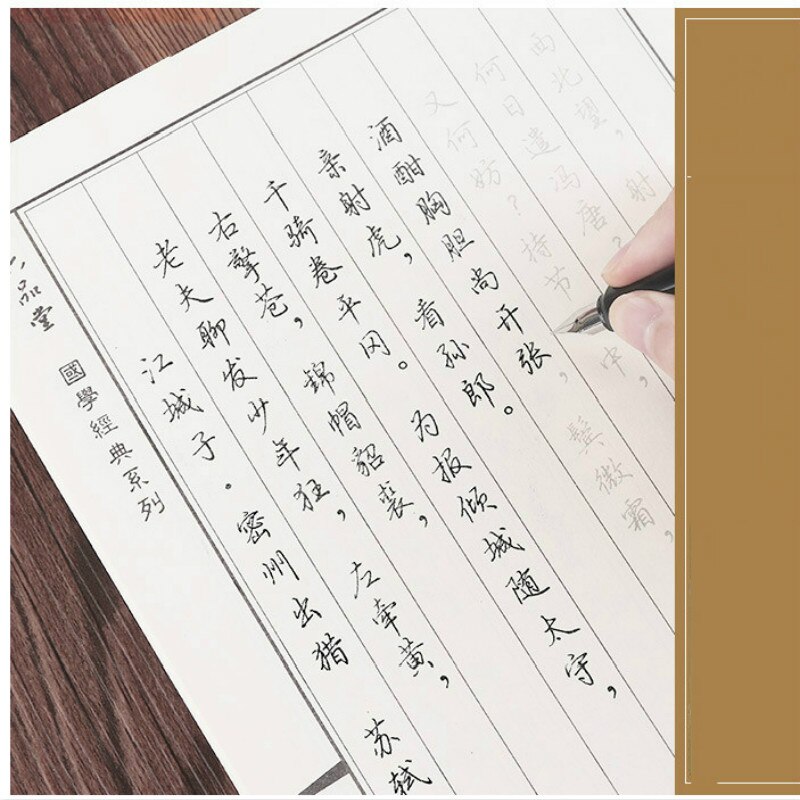 品堂
國學經典系列
江城子·密州出猎 苏轼
老夫聊发少年狂，左牵黄，
右擎苍，锦帽貂裘，
千骑卷平冈。为报倾城随太守，
亲射虎，看孙郎。
酒酣胸胆尚开张，鬓微霜，
又何妨？持节中，
何日遣冯唐？
西北望，射